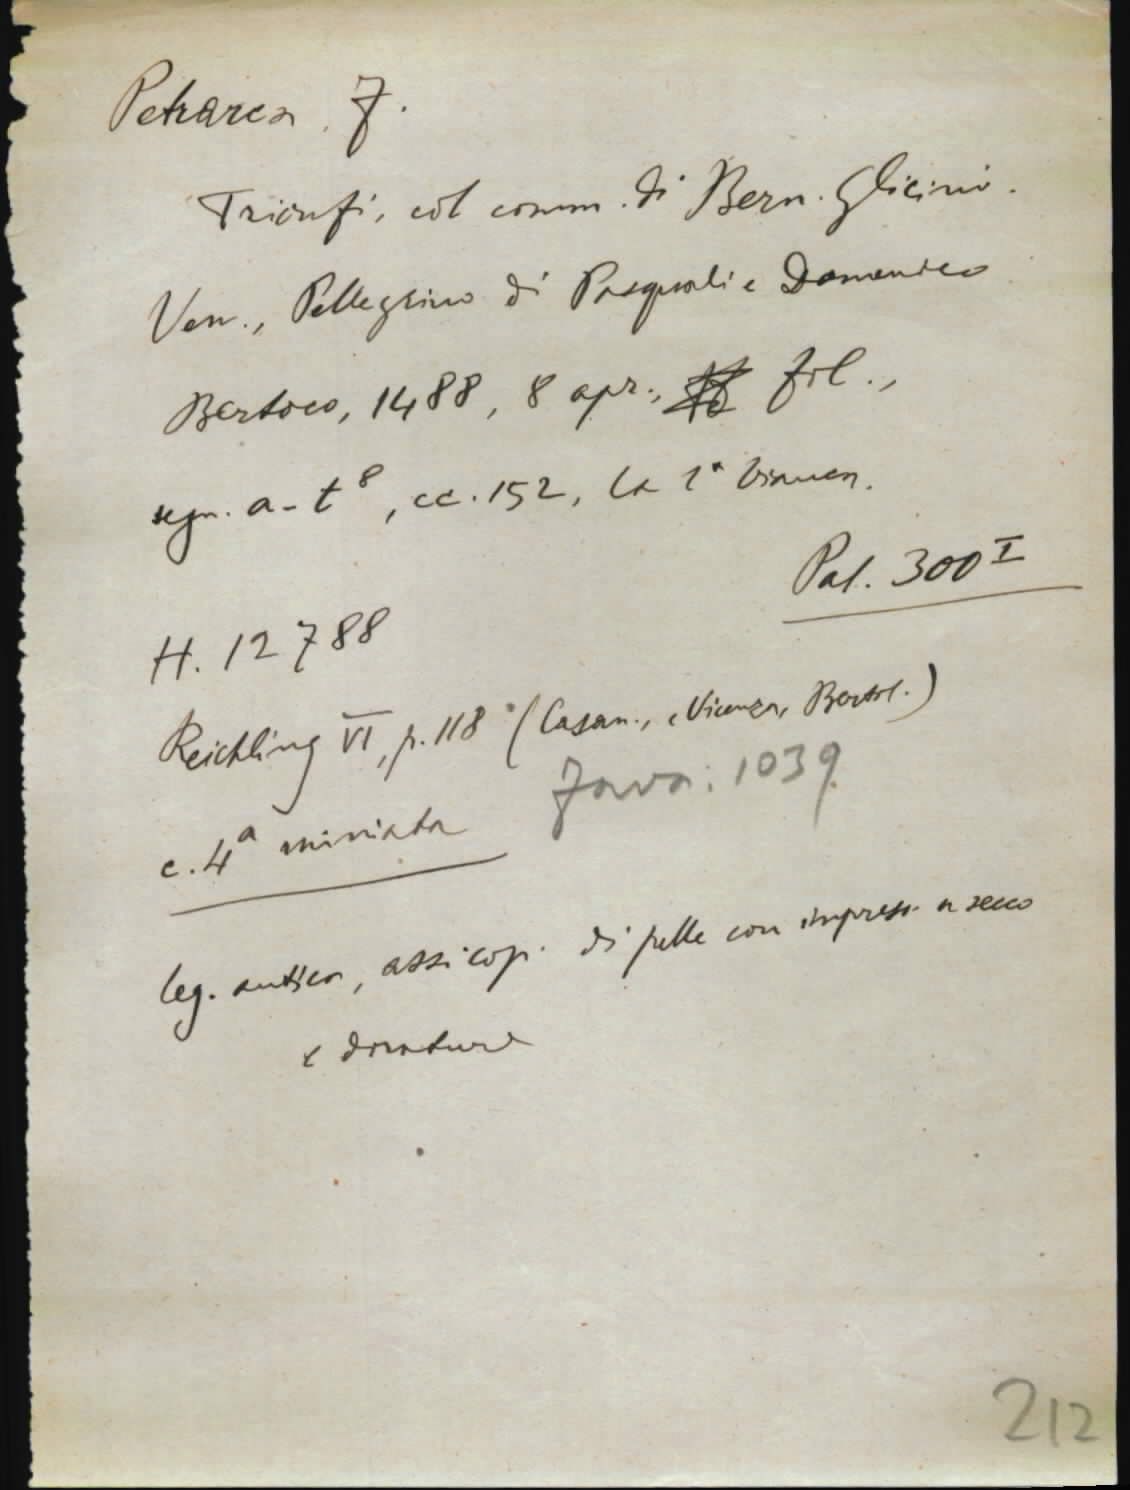 Petrarca, F.
Trionfi, col comm. di Bern. Glicini.
Ven., Pellegrino di Pasquali e Domenico
Bertoco, 1488, 8 apr., fol.,
segn. a-t⁸, cc. 152, la 1ª bianca.
Pal. 300 I
H. 12788
Reichling VI, p. 118 (Casan., Vicenza, Bertol.)
Fava: 1039
c. 4ª miniata
leg. antica, assi cop. di pelle con impress. a secco
e dorature
212